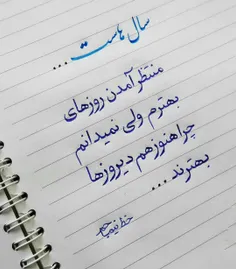 سال هاست ...
منتظر آمدن روزهای
بهترم ولی نمیدانم
چرا هنوز هم دیروزها
بهترند ...